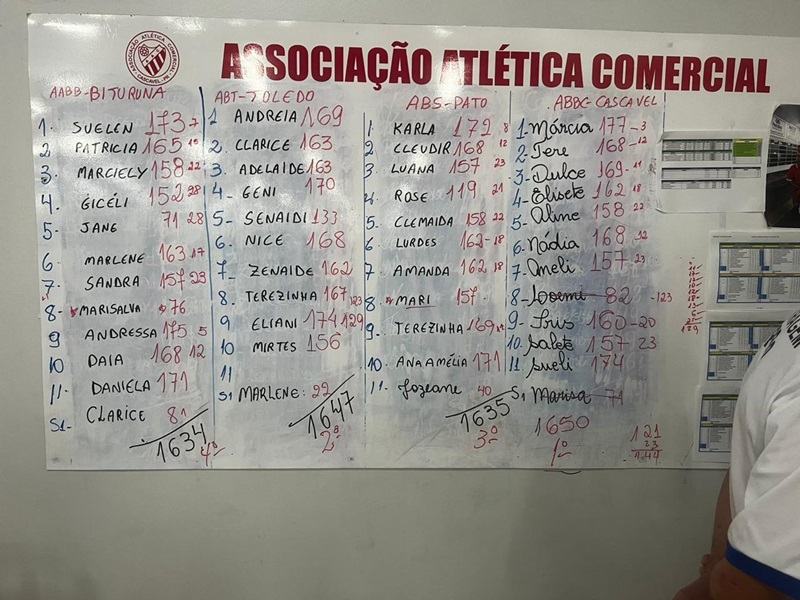 ASSOCIAÇÃO ATLÉTICA COMERCIAL
ASSOCIAÇÃO ATLÉTICA COMERCIAL
CASCAVEL-PR
AABB-BITURUNA
1. SUELEN 173 7
2 PATRICIA 165
3. MARCIELY 158 22
4. GICÉLI 152 28
5- JANE 71 28
6 MARLENE 163 17
7 SANDRA 157 23
8- MARISALVA 76
9 ANDRESSA 175 5
10 DAIA 168 12
11- DANIELA 171
S1- CLARICE
1634
4º
ABT-TOLEDO
1 ANDREIA 169
2. CLARICE 163
3. ADELAIDE 163
4- GENI 170
5- SENAIDI 133
6- NICE 168
7- ZENAIDE 162
8. TEREZINHA 167 123
9 ELIANI 174 129
10 MIRTES 156
11
S1 MARLENE: 22
1647
2º
ABS-PATO
1. KARLA 172 8
2 CLEUDIR 168 12
3. LUANA 157 23
4. ROSE 119 21
5 CLEMAIDA 158 22
6 LURDES 162-18
7 AMANDA 162 18
8 MARI 157
9- TEREZINHA 169
10- ANA AMÉLIA 171
11. Jozeane 40
1635
3º
ABBC-CASCAVEL
1-Márcia 177-3
2-Tere 168-12
3-Dulce 169-11
4-Elisete 162 18
5- Aline 158 22
6- Nádia 168 12
7- Aneli 157 23
8- Loemi 82 -123
9- Iris 160-20
10- Salete 157 23
11 Sueli 174
S1 Marisa 71
1650
1º
121
23
144